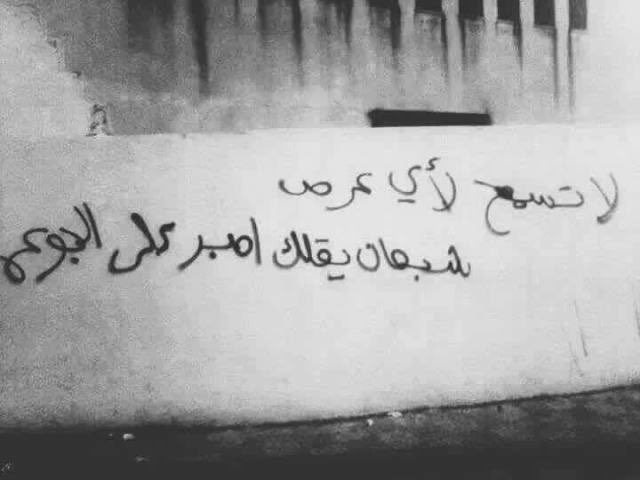 لا تسمح لأي عرص
شبعان يقلك اصبر على الجوع